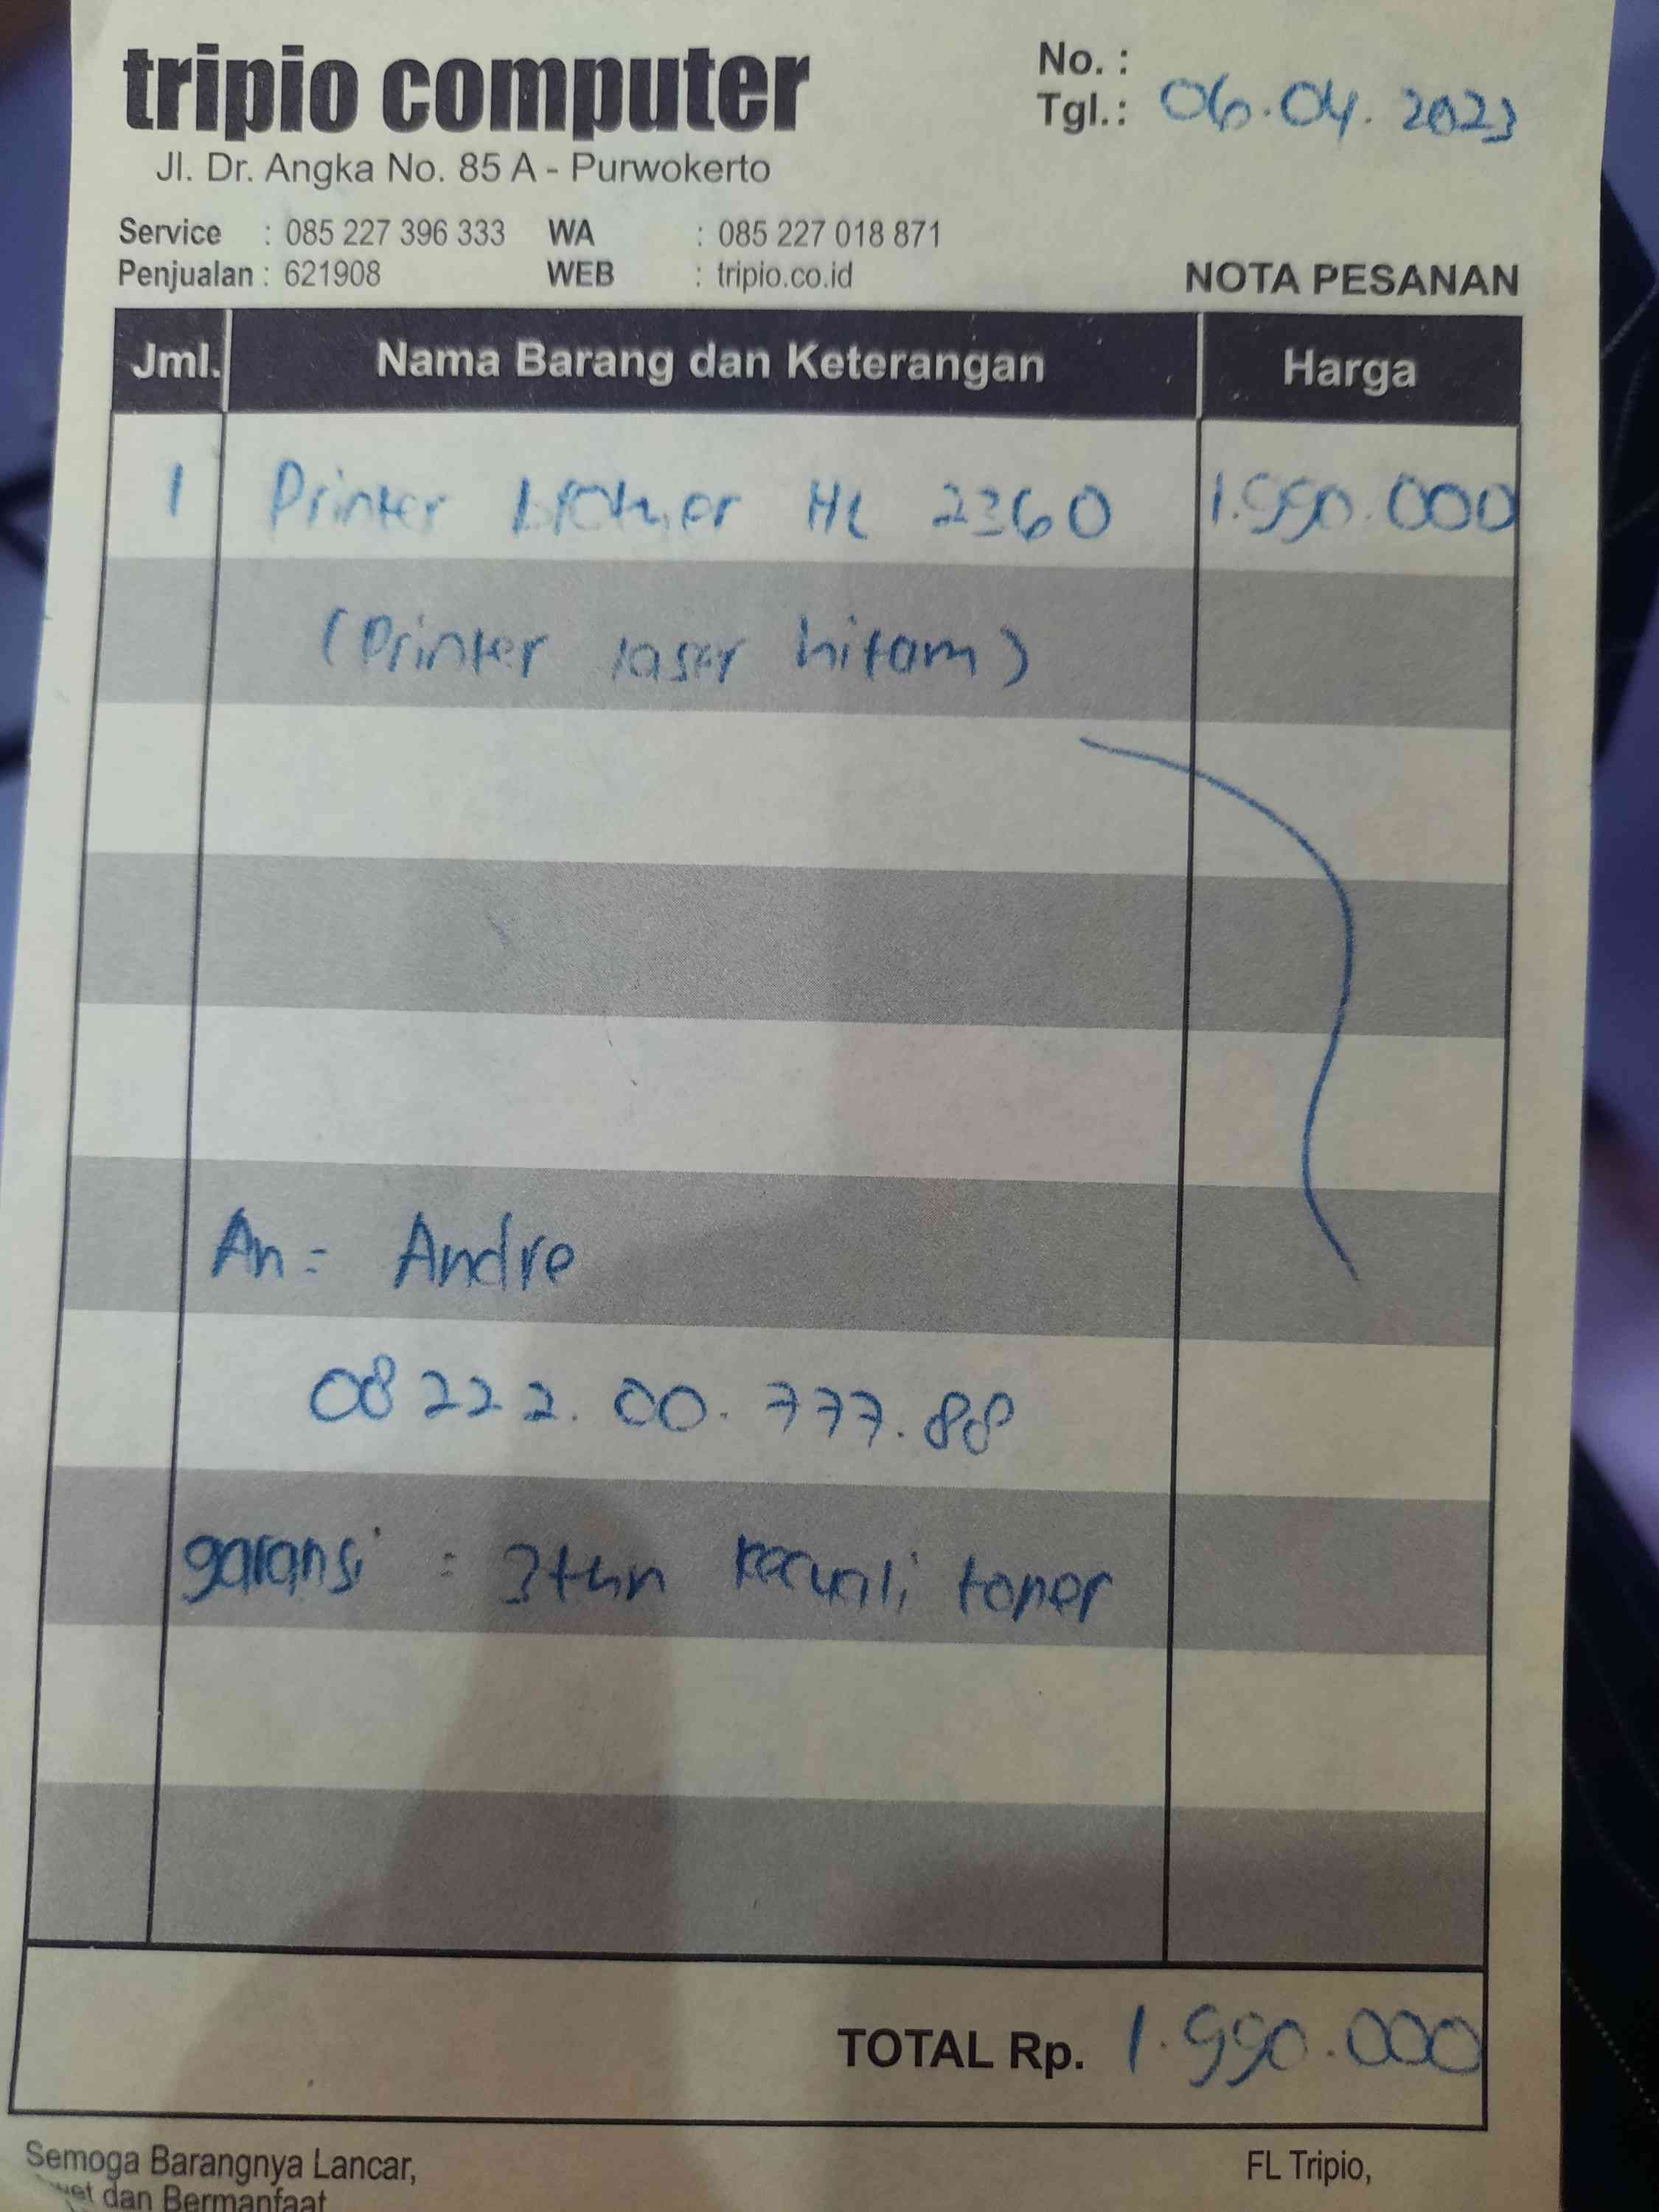 tripio computer
Jl. Dr. Angka No. 85 A - Purwokerto
No. :
Tgl. : 06.04.2023
Service : 085 227 396 333 WA : 085 227 018 871
Penjualan : 621908 WEB : tripio.co.id
NOTA PESANAN
Jml. Nama Barang dan Keterangan Harga
1 Printer brother HL 2360 1.990.000
(Printer laser hitam)
An = Andre
08222.00.777.88
garansi : 3thn kecuali toner
TOTAL Rp. 1.990.000
Semoga Barangnya Lancar, FL Tripio,
dan Bermanfaat